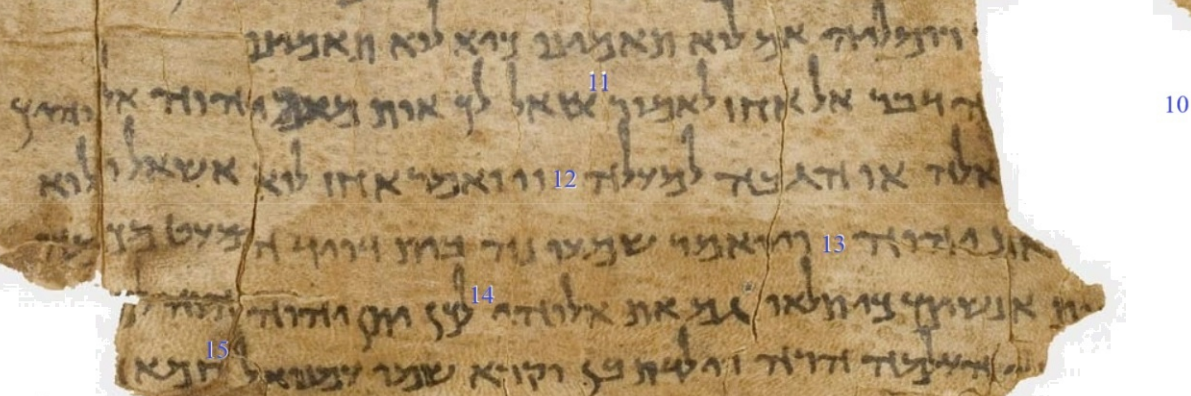 רומליה אם לוא תאמינו כיא לוא תאמנו
10 דבר אל אחז לאמור 11 שאל לך אות מאם יהוה אלוהיך
אלה או הגבה למעלה 12 ויואמר אחז לוא אשאל ולוא
את יהוה 13 ויואמר שמעו נא בית דויד המעט
אנשים כי תלאו גם את אלוהי 14 לכן יתן יהוה
העלמה הרה וילדת בן וקרא שמו עמנואל 15 חמא